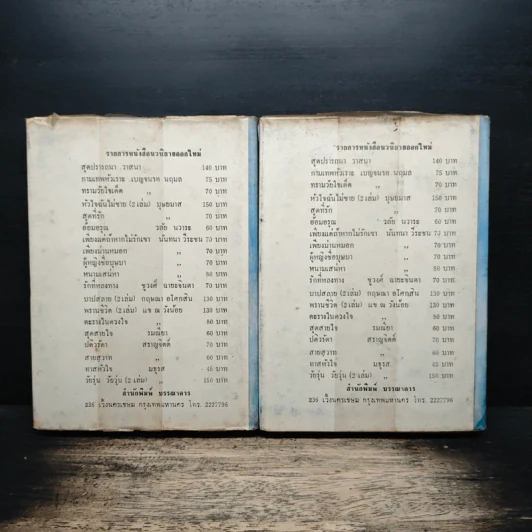 รายการหนังสือนวนิยายออกใหม่
สุดปรารถนา วาสนา 140 บาท
กามเทพหัวเราะ เบญจมรด นฤมล 75 บาท
ทรามวัยใจเด็ด ,, 70 บาท
หัวใจฉันไม่ขาย (2 เล่ม) บุษยมาส 150 บาท
สุดที่รัก ,, 70 บาท
อ้อมอรุณ วลัย นวาระ 60 บาท
เพียงแค่ถ้าหากไม่รักเขา นันทนา วีระชน 70 บาท
เพียงม่านหมอก ,, 70 บาท
ผู้หญิงชื่อบุษบา ,, 70 บาท
หนามเสน่หา ,, 80 บาท
รักที่หลงทาง ชูวงศ์ ฉายะจินดา 70 บาท
บาปสลาย (2 เล่ม) กฤษณา อโศกสิน 130 บาท
พรานชีวิต (2 เล่ม) แข ณ วังน้อย 130 บาท
ตะรางในดวงใจ ,, 80 บาท
สุดสายใจ รมณียา 60 บาท
ปดิวรัดา สราญจิตต์ 70 บาท
สายสุวาท ,, 60 บาท
ทาสหัวใจ มธุรส 45 บาท
วัยรุ่น วัยวุ่น (2 เล่ม) ,, 150 บาท
สำนักพิมพ์ บรรณาคาร
236 เวิ้งนครเขษม กรุงเทพมหานคร โทร. 2227796
รายการหนังสือนวนิยายออกใหม่
สุดปรารถนา วาสนา 140 บาท
กามเทพหัวเราะ เบญจมรด นฤมล 75 บาท
ทรามวัยใจเด็ด ,, 70 บาท
หัวใจฉันไม่ขาย (2 เล่ม) บุษยมาส 150 บาท
สุดที่รัก ,, 70 บาท
อ้อมอรุณ วลัย นวาระ 60 บาท
เพียงแค่ถ้าหากไม่รักเขา นันทนา วีระชน 70 บาท
เพียงม่านหมอก ,, 70 บาท
ผู้หญิงชื่อบุษบา ,, 70 บาท
หนามเสน่หา ,, 80 บาท
รักที่หลงทาง ชูวงศ์ ฉายะจินดา 70 บาท
บาปสลาย (2 เล่ม) กฤษณา อโศกสิน 130 บาท
พรานชีวิต (2 เล่ม) แข ณ วังน้อย 130 บาท
ตะรางในดวงใจ ,, 80 บาท
สุดสายใจ รมณียา 60 บาท
ปดิวรัดา สราญจิตต์ 70 บาท
สายสุวาท ,, 60 บาท
ทาสหัวใจ มธุรส 45 บาท
วัยรุ่น วัยวุ่น (2 เล่ม) ,, 150 บาท
สำนักพิมพ์ บรรณาคาร
236 เวิ้งนครเขษม กรุงเทพมหานคร โทร. 2227796